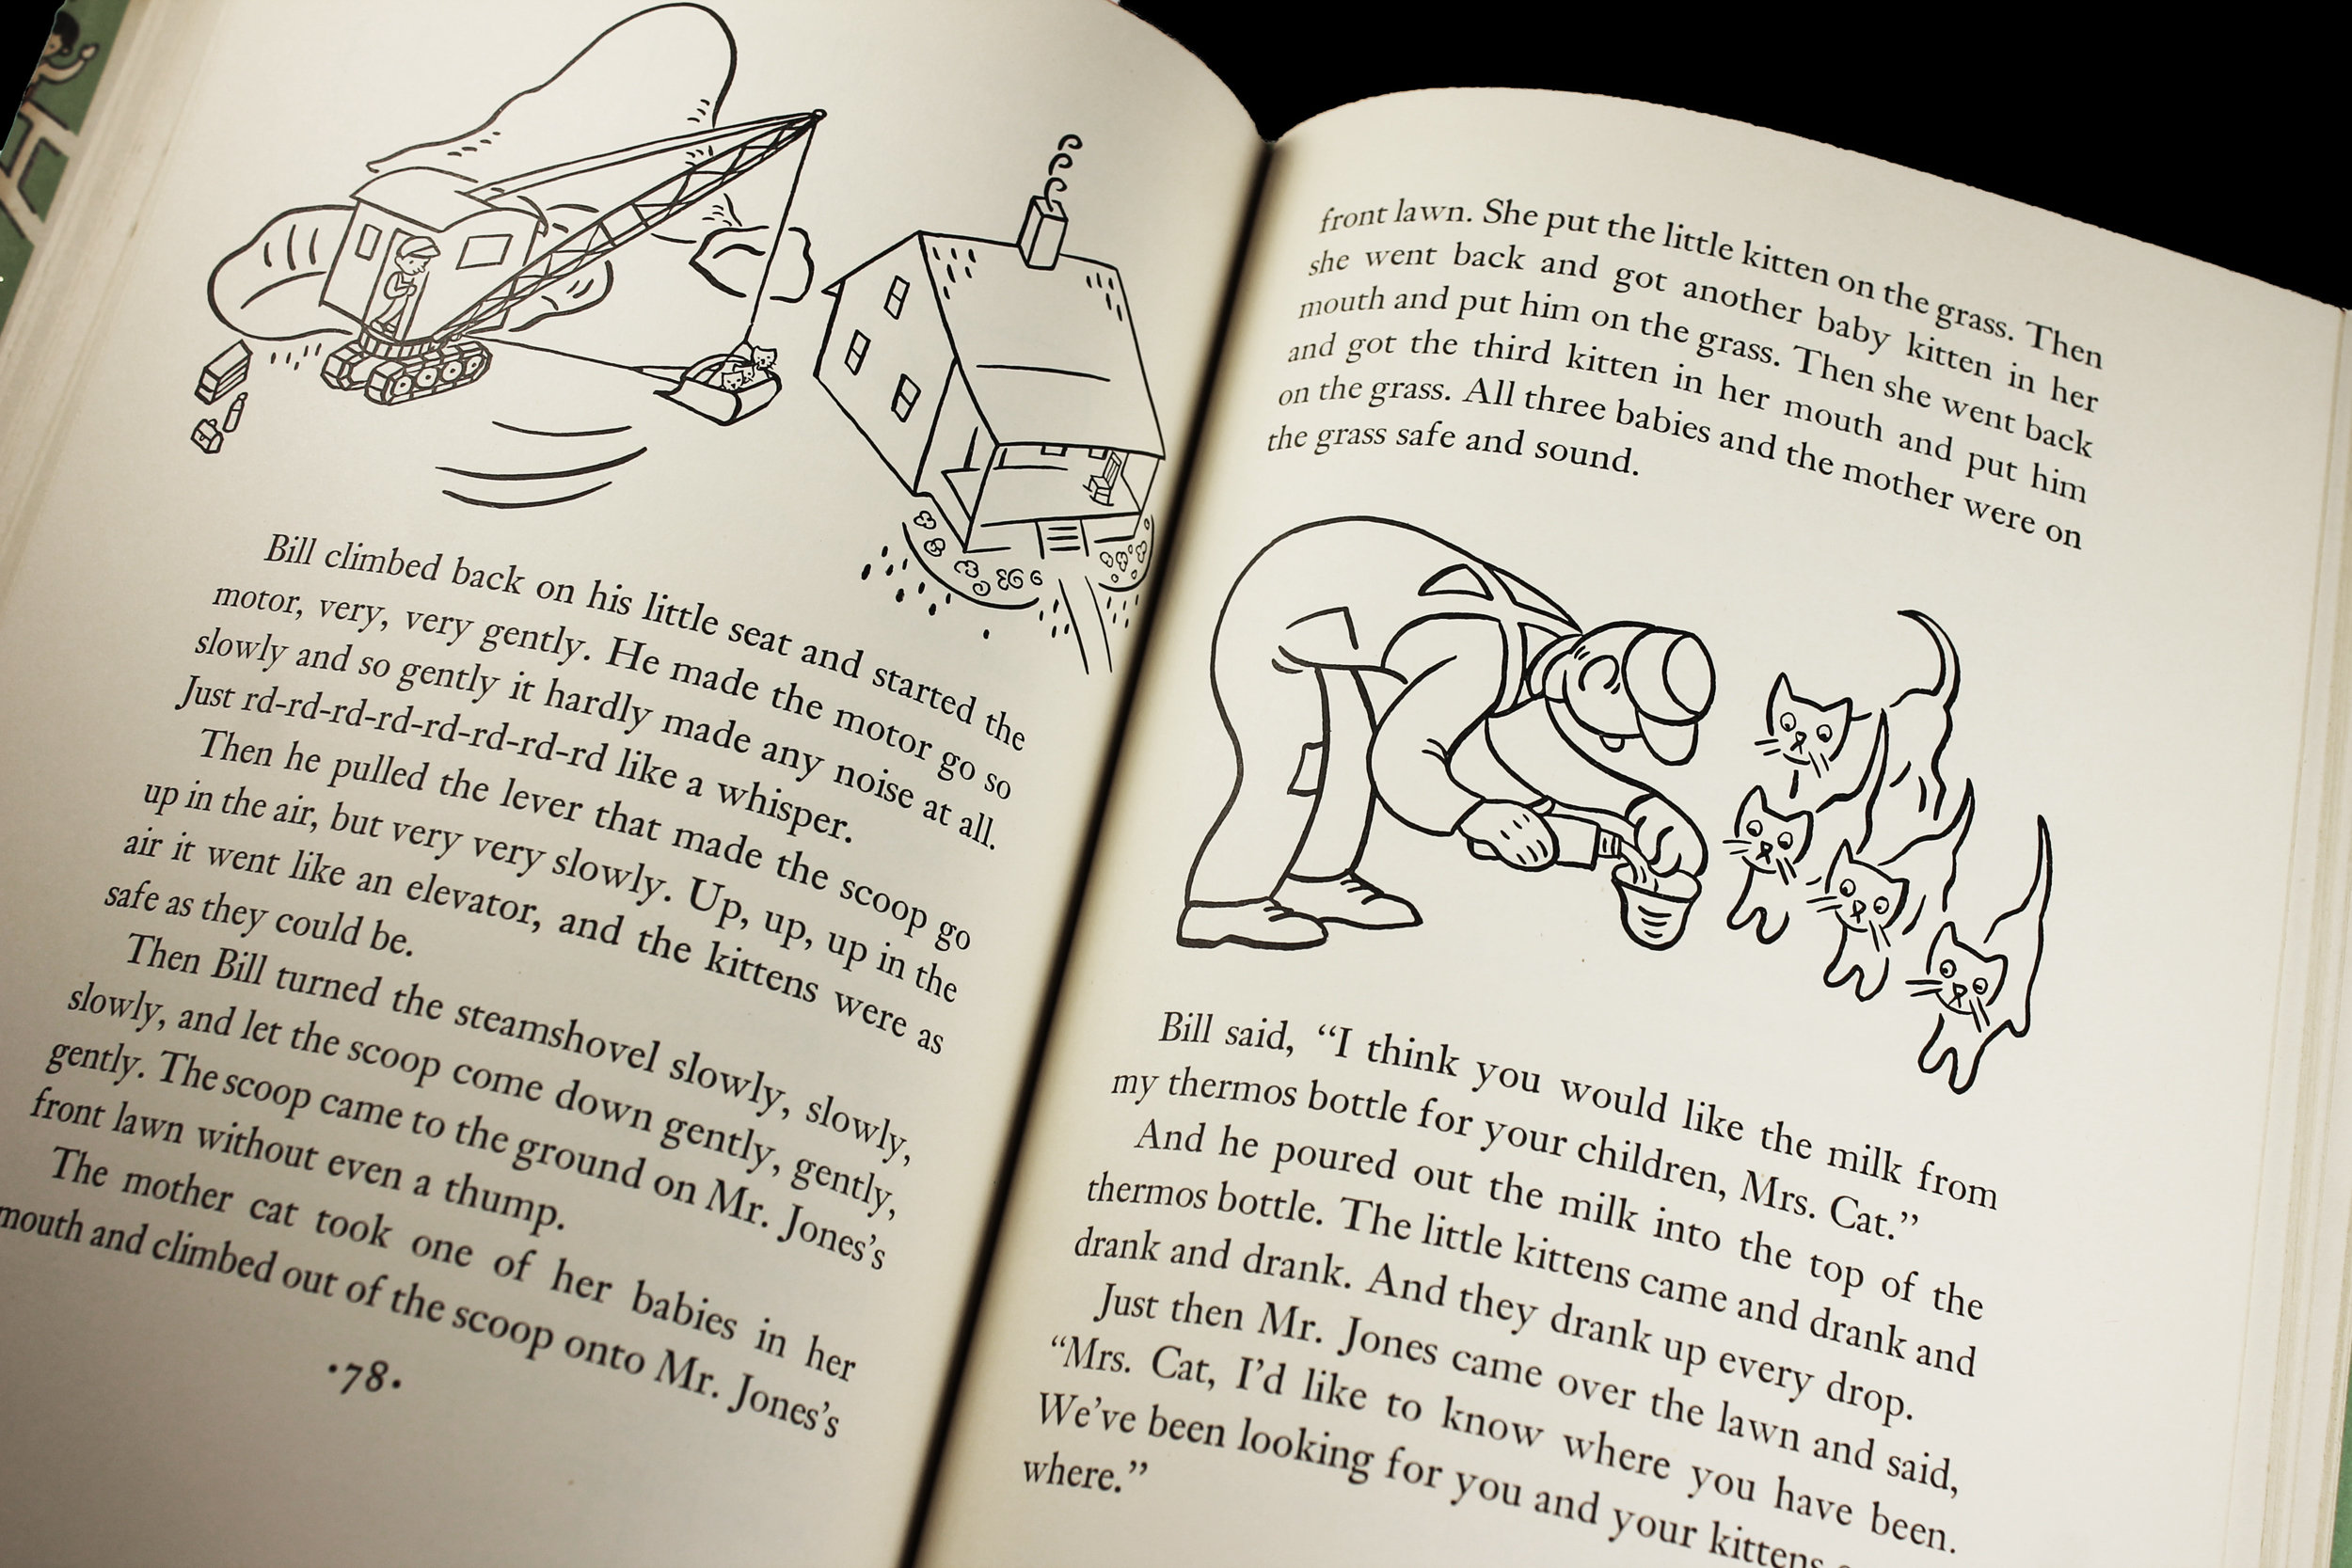 Bill climbed back on his little seat and started the
motor, very, very gently. He made the motor go so
slowly and so gently it hardly made any noise at all.
Just rd-rd-rd-rd-rd-rd-rd-rd like a whisper.
Then he pulled the lever that made the scoop go
up in the air, but very very slowly. Up, up, up in the
air it went like an elevator, and the kittens were as
safe as they could be.
Then Bill turned the steamshovel slowly, slowly,
slowly, and let the scoop come down gently, gently,
gently. The scoop came to the ground on Mr. Jones's
front lawn without even a thump.
The mother cat took one of her babies in her
mouth and climbed out of the scoop onto Mr. Jones's
·78·
front lawn. She put the little kitten on the grass. Then
she went back and got another baby kitten in her
mouth and put him on the grass. Then she went back
and got the third kitten in her mouth and put him
on the grass. All three babies and the mother were on
the grass safe and sound.
Bill said, “I think you would like the milk from
my thermos bottle for your children, Mrs. Cat.”
And he poured out the milk into the top of the
thermos bottle. The little kittens came and drank and
drank and drank. And they drank up every drop.
Just then Mr. Jones came over the lawn and said,
“Mrs. Cat, I’d like to know where you have been.
We’ve been looking for you and your kittens
where.”